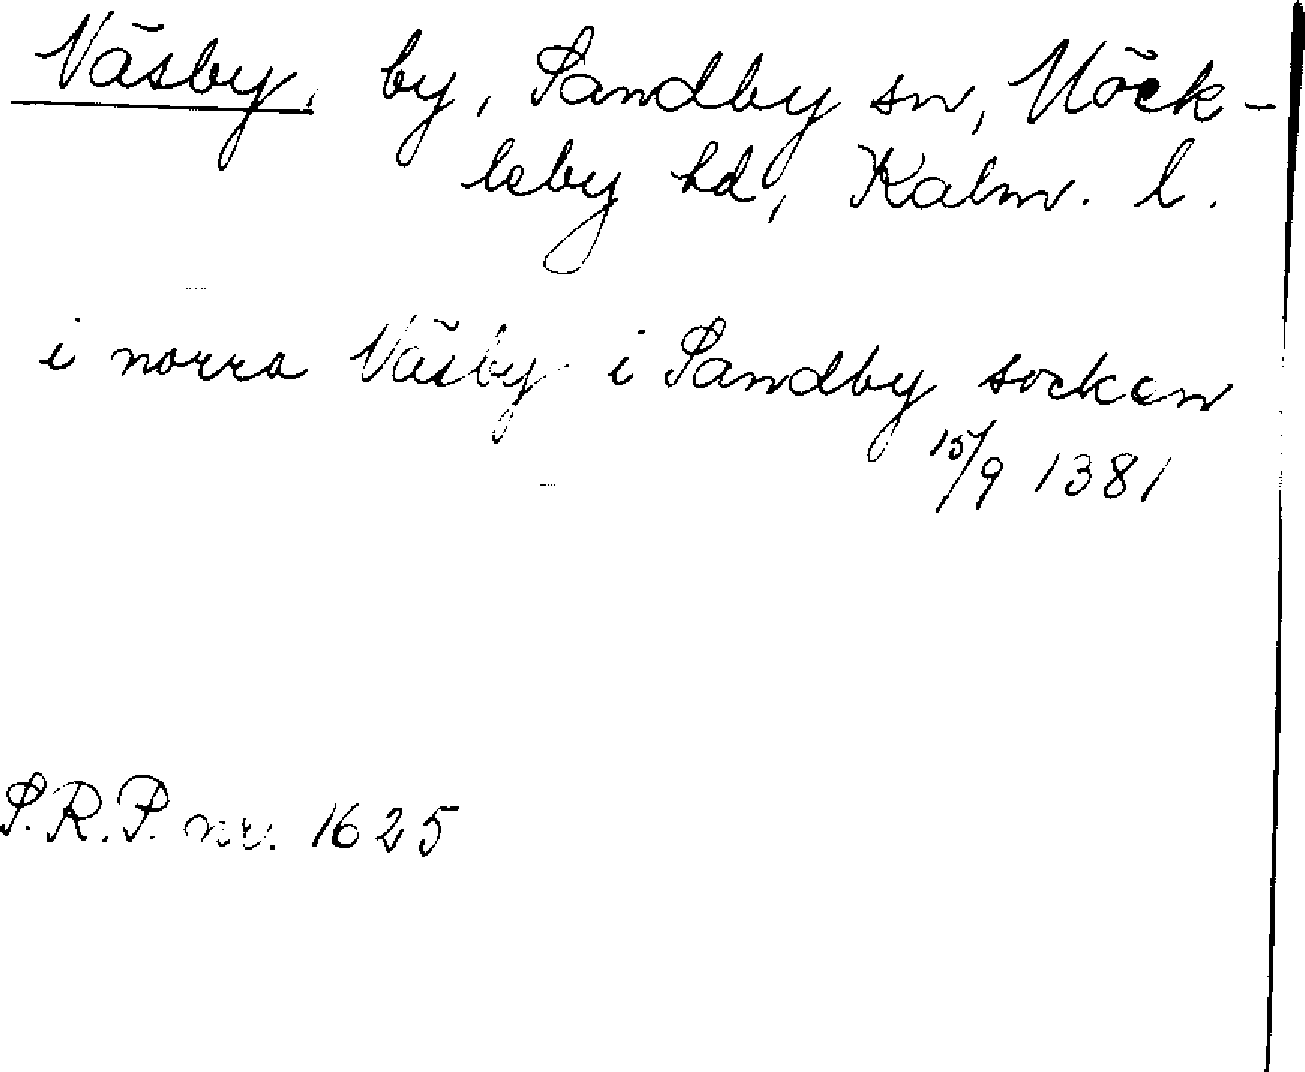 Väsby, by, Sandby sn, Möck-
leby hd, Kalm. l.
i norra Väsby i Sandby socken
15/9 1381
S.R.P. nr. 1625